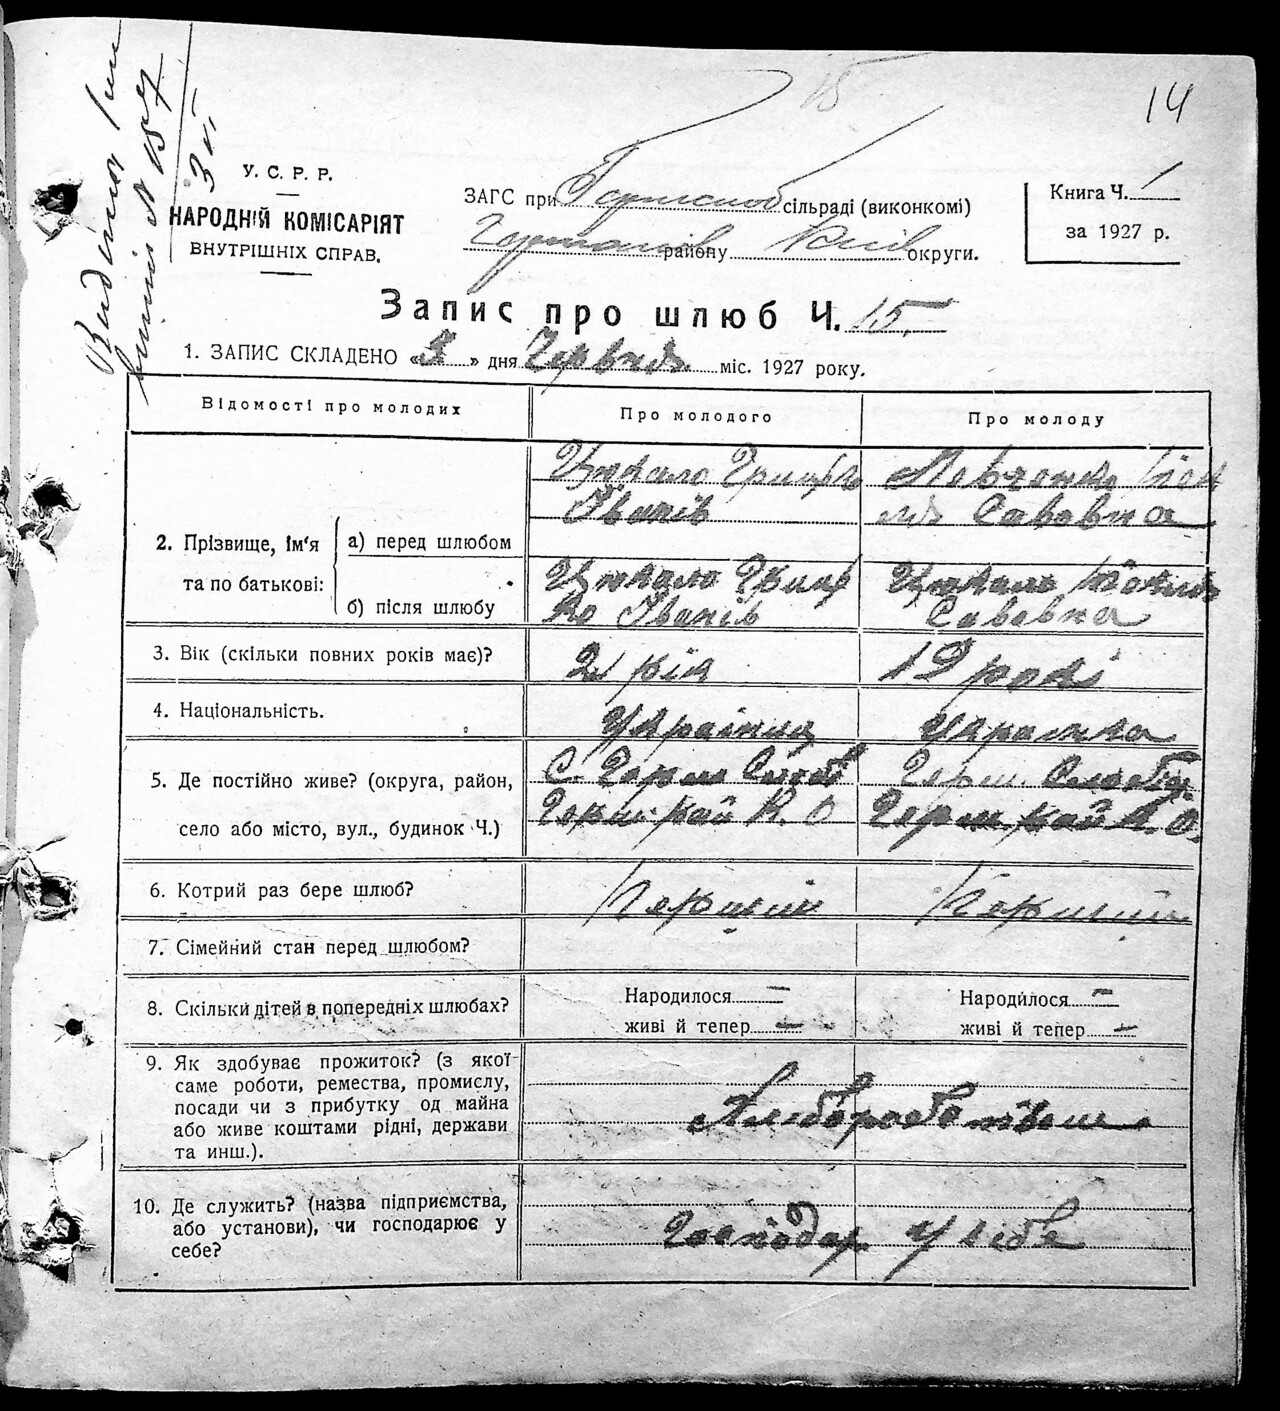 15
14
У. С. Р. Р.
НАРОДНІЙ КОМІСАРІЯТ
ВНУТРІШНІХ СПРАВ.
ЗАГС при сільраді (виконкомі)
району Київ округи.
Книга Ч. 1
за 1927 р.
Запис про шлюб Ч. 15.
1. ЗАПИС СКЛАДЕНО «3» дня Червня міс. 1927 року.
Відомості про молодих
Про молодого
Про молоду
2. Прізвище, ім'я
та по батькові:
а) перед шлюбом
Цюкало Грицько
Іванів
Левченко
Савовна
б) після шлюбу
Цюкало Гриць
ко Іванів
Цюкало
Савовна
3. Вік (скільки повних років має)?
21 рік
19 років
4. Національність.
Українець
Українка
5. Де постійно живе? (округа, район,
село або місто, вул., будинок Ч.)
С. Горен
рай К. О
Слобід.
рай К. О.
6. Котрий раз бере шлюб?
Перший
Перший
7. Сімейний стан перед шлюбом?
8. Скільки дітей в попередніх шлюбах?
Народилося —
живі й тепер —
Народилося —
живі й тепер —
9. Як здобуває прожиток? (з якої
саме роботи, ремества, промислу,
посади чи з прибутку од майна
або живе коштами рідні, держави
та инш.).
Хліборобством
10. Де служить? (назва підприємства,
або установи), чи господарює у
себе?
Господар. у себе